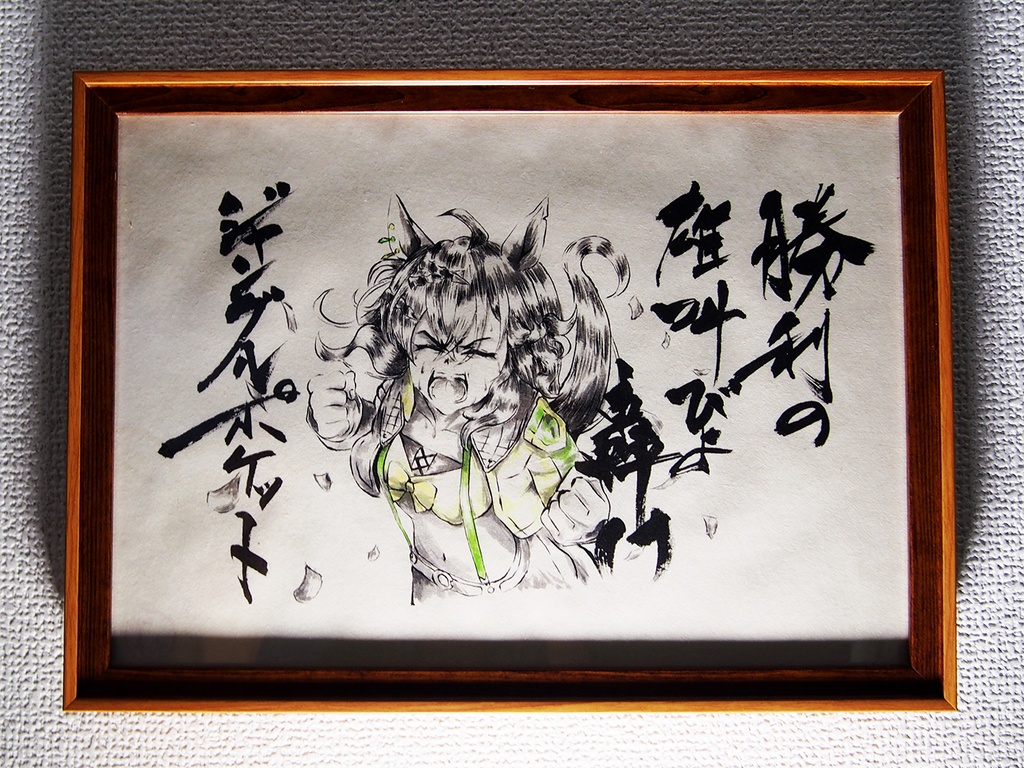 勝利の
雄叫びよ
轟け
ジャングルポケット